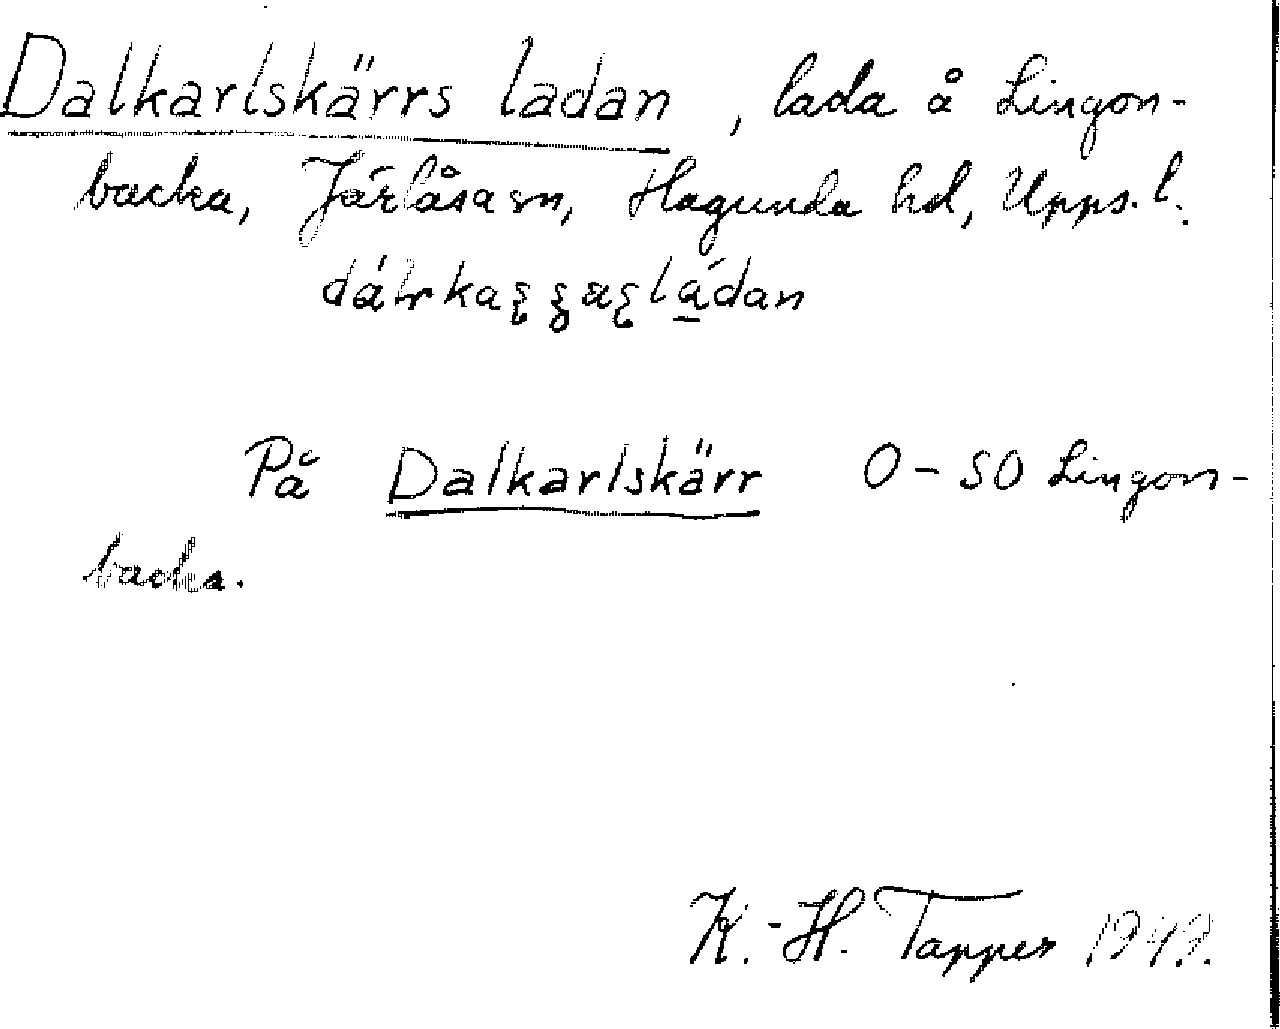 Dalkarlskärrs ladan, lada å Lingon-
backa, Järlåsa sn, Hagunda hd, Upps. l.
På Dalkarlskärr 0-50 Lingon-
backa.
K.-H. Tapper